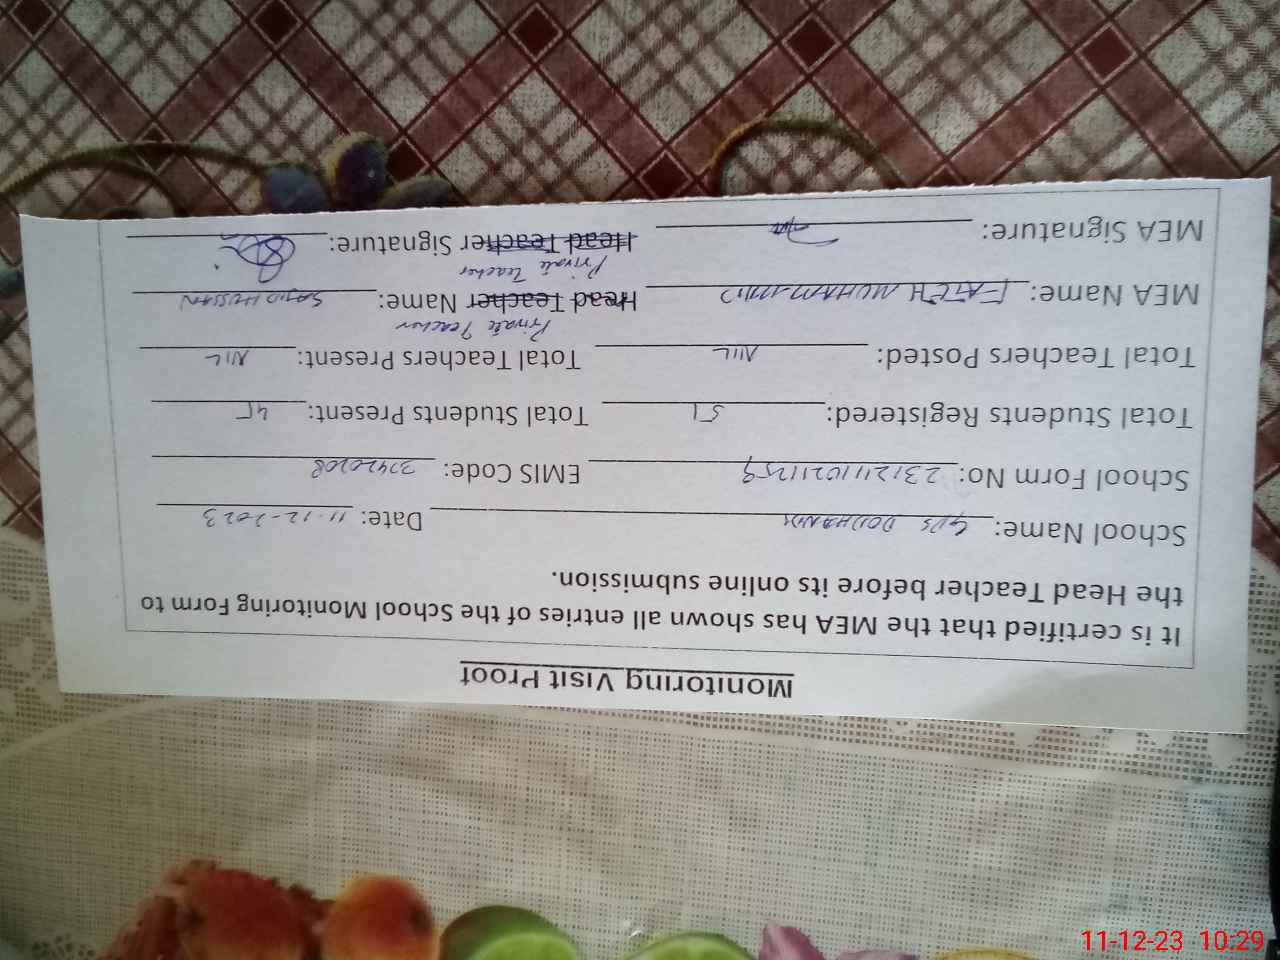 Monitoring Visit Proof
It is certified that the MEA has shown all entries of the School Monitoring Form to
the Head Teacher before its online submission.
School Name: GPS DODHANDI Date: 11-12-2023
School Form No: 231211102111259 EMIS Code: 37420208
Total Students Registered: 51 Total Students Present: 45
Total Teachers Posted: NIL Total Teachers Present: NIL
Private Teacher
MEA Name: FATEH MUHAMMAD Head Teacher Name: SAJID HUSSAIN
Private Teacher
MEA Signature: Head Teacher Signature:
11-12-23 10:29